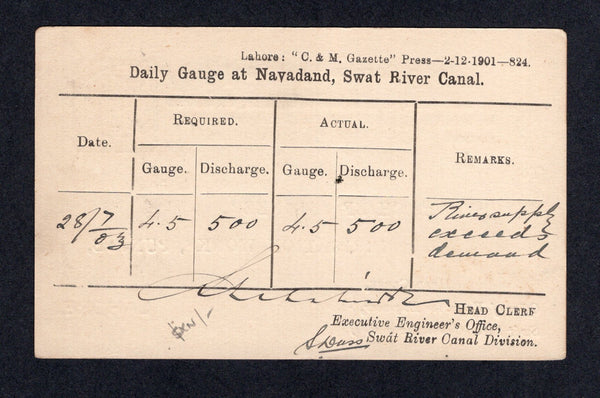 Lahore: "C. & M. Gazette" Press—2-12-1901—824.
Daily Gauge at Navadand, Swat River Canal.
Date. REQUIRED. ACTUAL. REMARKS.
Gauge. Discharge. Gauge. Discharge.
28/7/03 4.5 500 4.5 500 River supply
exceeds
demand
HEAD CLERK
Executive Engineer's Office,
Swát River Canal Division.